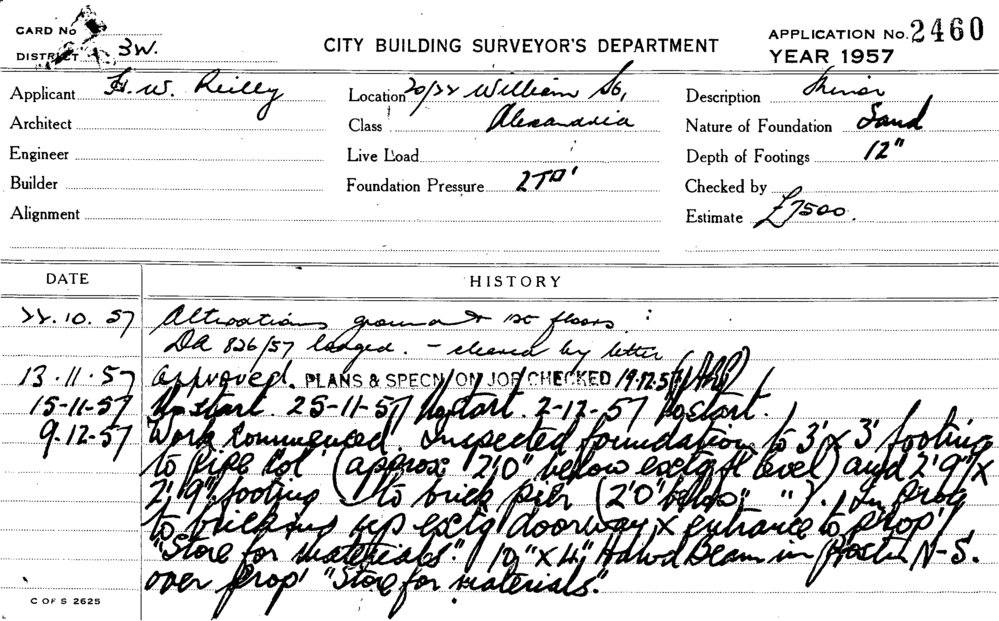 CARD No
DISTRICT 3W.
CITY BUILDING SURVEYOR'S DEPARTMENT
APPLICATION No. 2460
YEAR 1957
Applicant F. W. Reilly
Location 20/22 William St,
Description Minor
Architect
Class Alexandria
Nature of Foundation Sand
Engineer
Live Load
Depth of Footings 12"
Builder
Foundation Pressure 2T□'
Checked by
Alignment
Estimate £7500.
DATE
HISTORY
22.10.57 Alterations ground & 1st floors
DA 826/57 lodged. - cleared by letter
13.11.57 approved. PLANS & SPECN ON JOB CHECKED 19.12.57
15-11-57 No start. 25-11-57 No start. 2-12-57 No start.
9.12.57 Work commenced. Inspected foundation to 3' x 3' footing
to pipe col (approx 2'0" below extg fl level) and 2'9" x
2'9" footing to brick pier (2'0" below " "). In prog
to bricking up extg doorway x entrance to prop'
"Store for materials". 10" x 4" Hawd Beam in N-S.
over prop' "Store for materials".
C OF S 2625